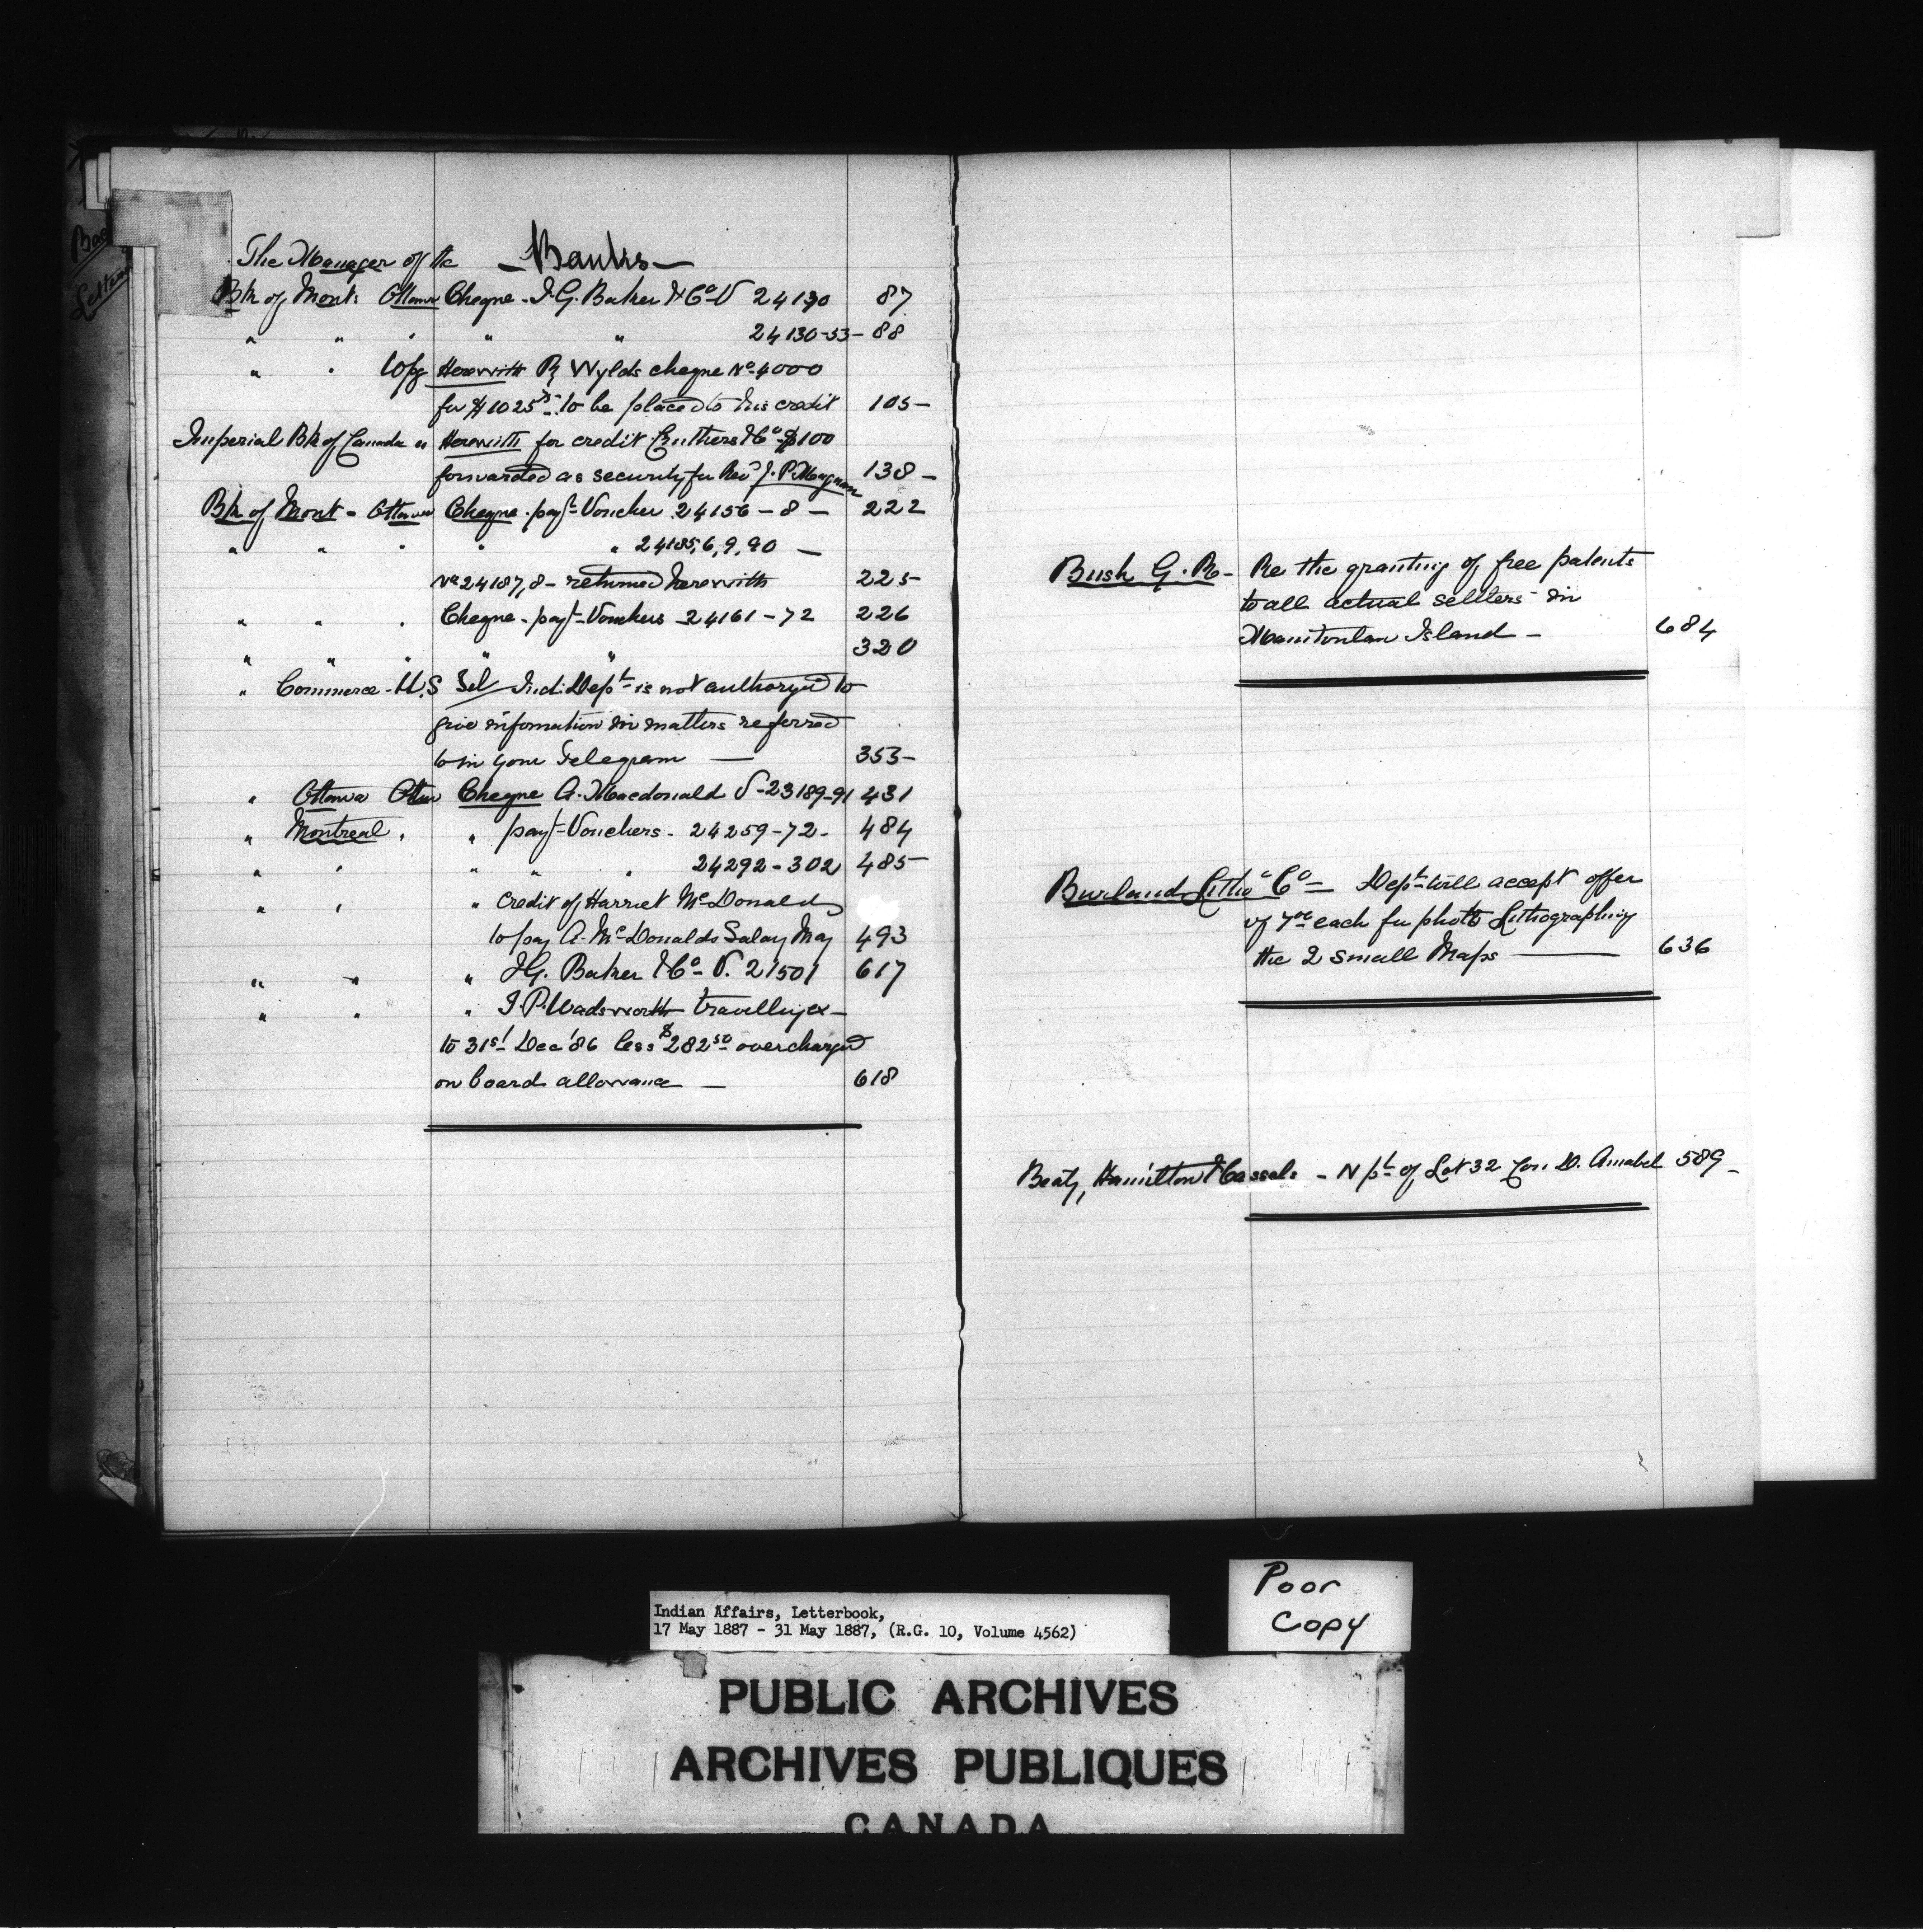 The Manager of the — Banks —
Bk of Mont: Ottawa Cheque - I. G. Baker & Co V 24130 87
" " " " " 24130-53 - 88
" " Wpg Herewith R Wylds cheque No 4000
for $1025 75 to be placed to his credit 105 -
Imperial Bk of Canada " Herewith for credit Cruthers & Co $100
forwarded as security for Revd J. P. Magnan 138 -
Bk of Mont - Ottawa Cheque - payt Voucher 24156 - 8 - 222
" " " " " 24185, 6, 9, 90 —
No 24187, 8 - returned herewith 225
" " " Cheque - payt Vouchers 24161 - 72 226
" " " " " 320
" Commerce - U.S Tel Ind: Dept is not authorized to
give information in matters referred
to in your Telegram — 353 -
" Ottawa Ottw Cheque A. Macdonald V - 23189-91 431
" Montreal " " payt Vouchers - 24259 - 72 - 484
" " " " " 24292 - 302 485
" " " Credit of Harriet McDonald
to pay A. McDonalds Salary May 493
" " " I G. Baker & Co V. 21501 617
" " " T. P. Wadsworth travelling ex -
to 31st Dec '86 less $282 50 overcharged
on board allowance — 618
Bush G. R - Re the granting of free patents
to all actual settlers in
Manitoulin Island - 684
Burland Litho Co - Dept will accept offer
of 7 00 each for photo Lithographing
the 2 small Maps — 636
Beaty, Hamilton & Cassels - N pt of Lot 32 Con. D. Amabel 589 -
Letters
Poor
Copy
Indian Affairs, Letterbook,
17 May 1887 - 31 May 1887, (R.G. 10, Volume 4562)
PUBLIC ARCHIVES
ARCHIVES PUBLIQUES
CANADA